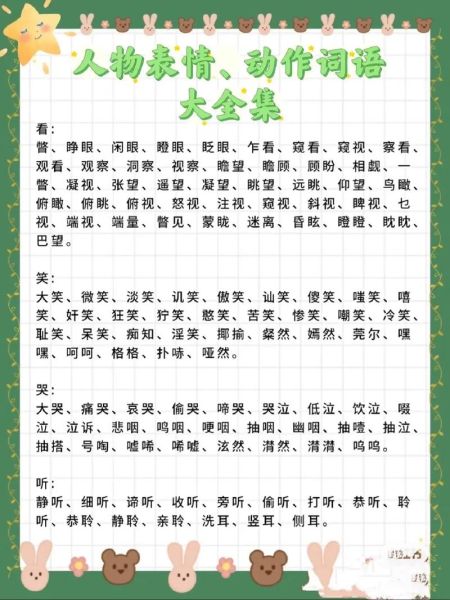 人物表情、动作词语
大全集
看：
瞥、睁眼、闲眼、瞪眼、眨眼、乍看、窥看、窥视、察看、
观看、观察、洞察、视察、瞻望、瞻顾、顾盼、相觑、一
瞥、凝视、张望、遥望、凝望、眺望、远眺、仰望、鸟瞰、
俯瞰、俯眺、俯视、怒视、注视、窥视、斜视、睥视、乜
视、端视、端量、瞥见、蒙眬、迷离、昏眩、瞪瞪、眈眈、
巴望。
笑：
大笑、微笑、淡笑、讥笑、傲笑、讪笑、傻笑、嗤笑、嘻
笑、奸笑、狂笑、狞笑、憨笑、苦笑、惨笑、嘲笑、冷笑、
耻笑、呆笑、痴知、淫笑、揶揄、粲然、嫣然、莞尔、嘿
嘿、呵呵、格格、扑哧、哑然。
哭：
大哭、痛哭、哀哭、偷哭、啼哭、哭泣、低泣、饮泣、啜
泣、泣诉、悲咽、呜咽、哽咽、抽咽、幽咽、抽噎、抽泣、
抽搭、号啕、嘘唏、唏嘘、泫然、潸然、潸潸、呜呜。
听：
静听、细听、谛听、收听、旁听、偷听、打听、恭听、聆
听、恭聆、静聆、亲聆、洗耳、竖耳、侧耳。